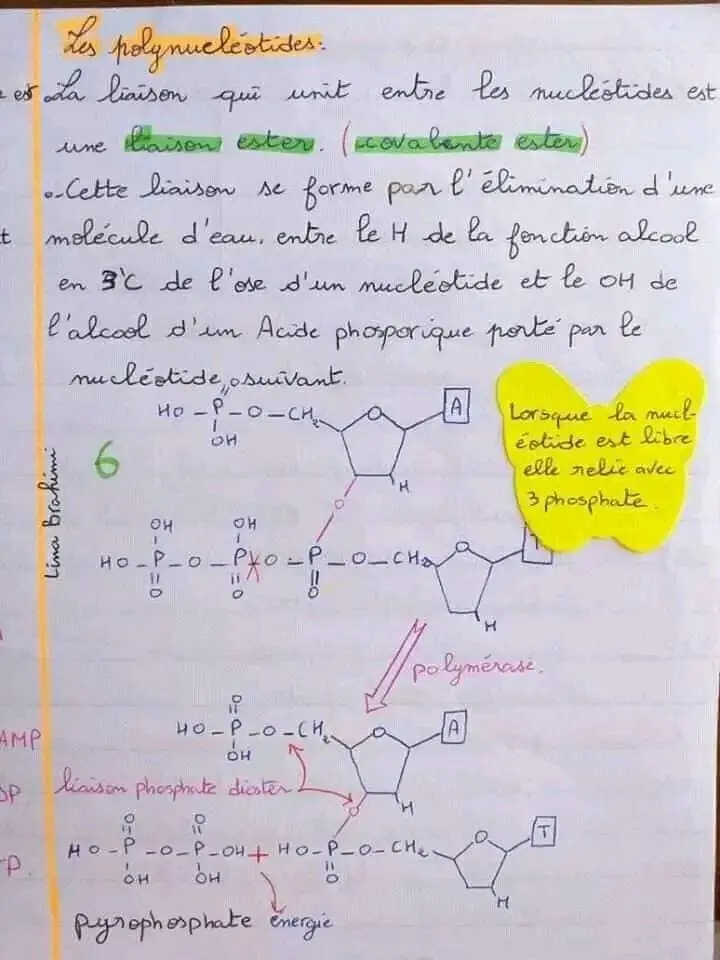 Les polynucléotides:
La liaison qui unit entre les nucléotides est
une liaison ester. (covalente ester)
- Cette liaison se forme par l'élimination d'une
molécule d'eau, entre le H de la fonction alcool
en 3'C de l'ose d'un nucléotide et le OH de
l'alcool d'un Acide phosporique porté par le
nucléotide suivant.
O
HO - P - O - CH2 O A
OH
H
Lorsque la nucl-
éotide est libre
elle relie avec
3 phosphate.
6
Lina Brahimi
O
OH OH
HO - P - O - P - O - P - O - CH2 O T
O O O
H
polymérase.
O
HO - P - O - CH2 O A
OH
H
AMP
DP
TP
liaison phosphate diester
O
O O
HO - P - O - P - OH + HO - P - O - CH2 O T
OH OH O
H
pyrophosphate énergie